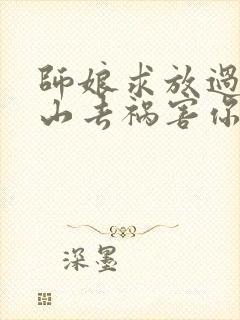 師娘求放過
山去禍害你
深墨